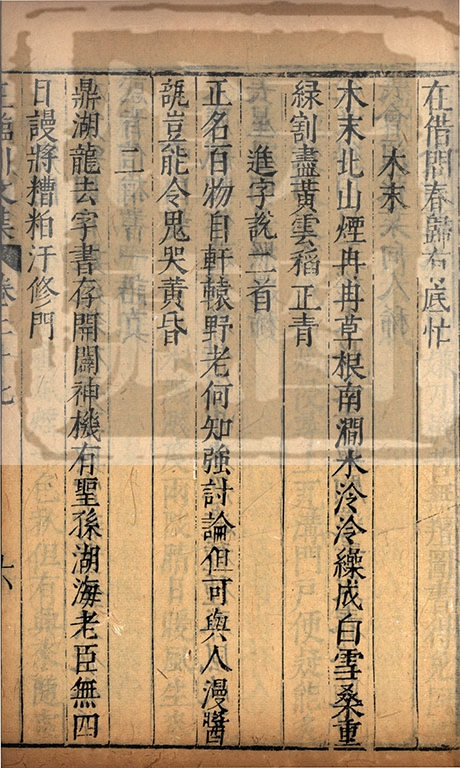 在借問春歸有底忙
木末
木末北山煙冉冉草根南澗水泠泠繰成白雪桑重
綠割盡黃雲稻正青
進字說二首
正名百物自軒轅野老何知強討論但可與人漫醬
瓿豈能令鬼哭黃昏
二
鼎湖龍去字書存開闢神機有聖孫湖海老臣無四
目謾將糟粕汙修門
王臨川文集 卷二十七 六